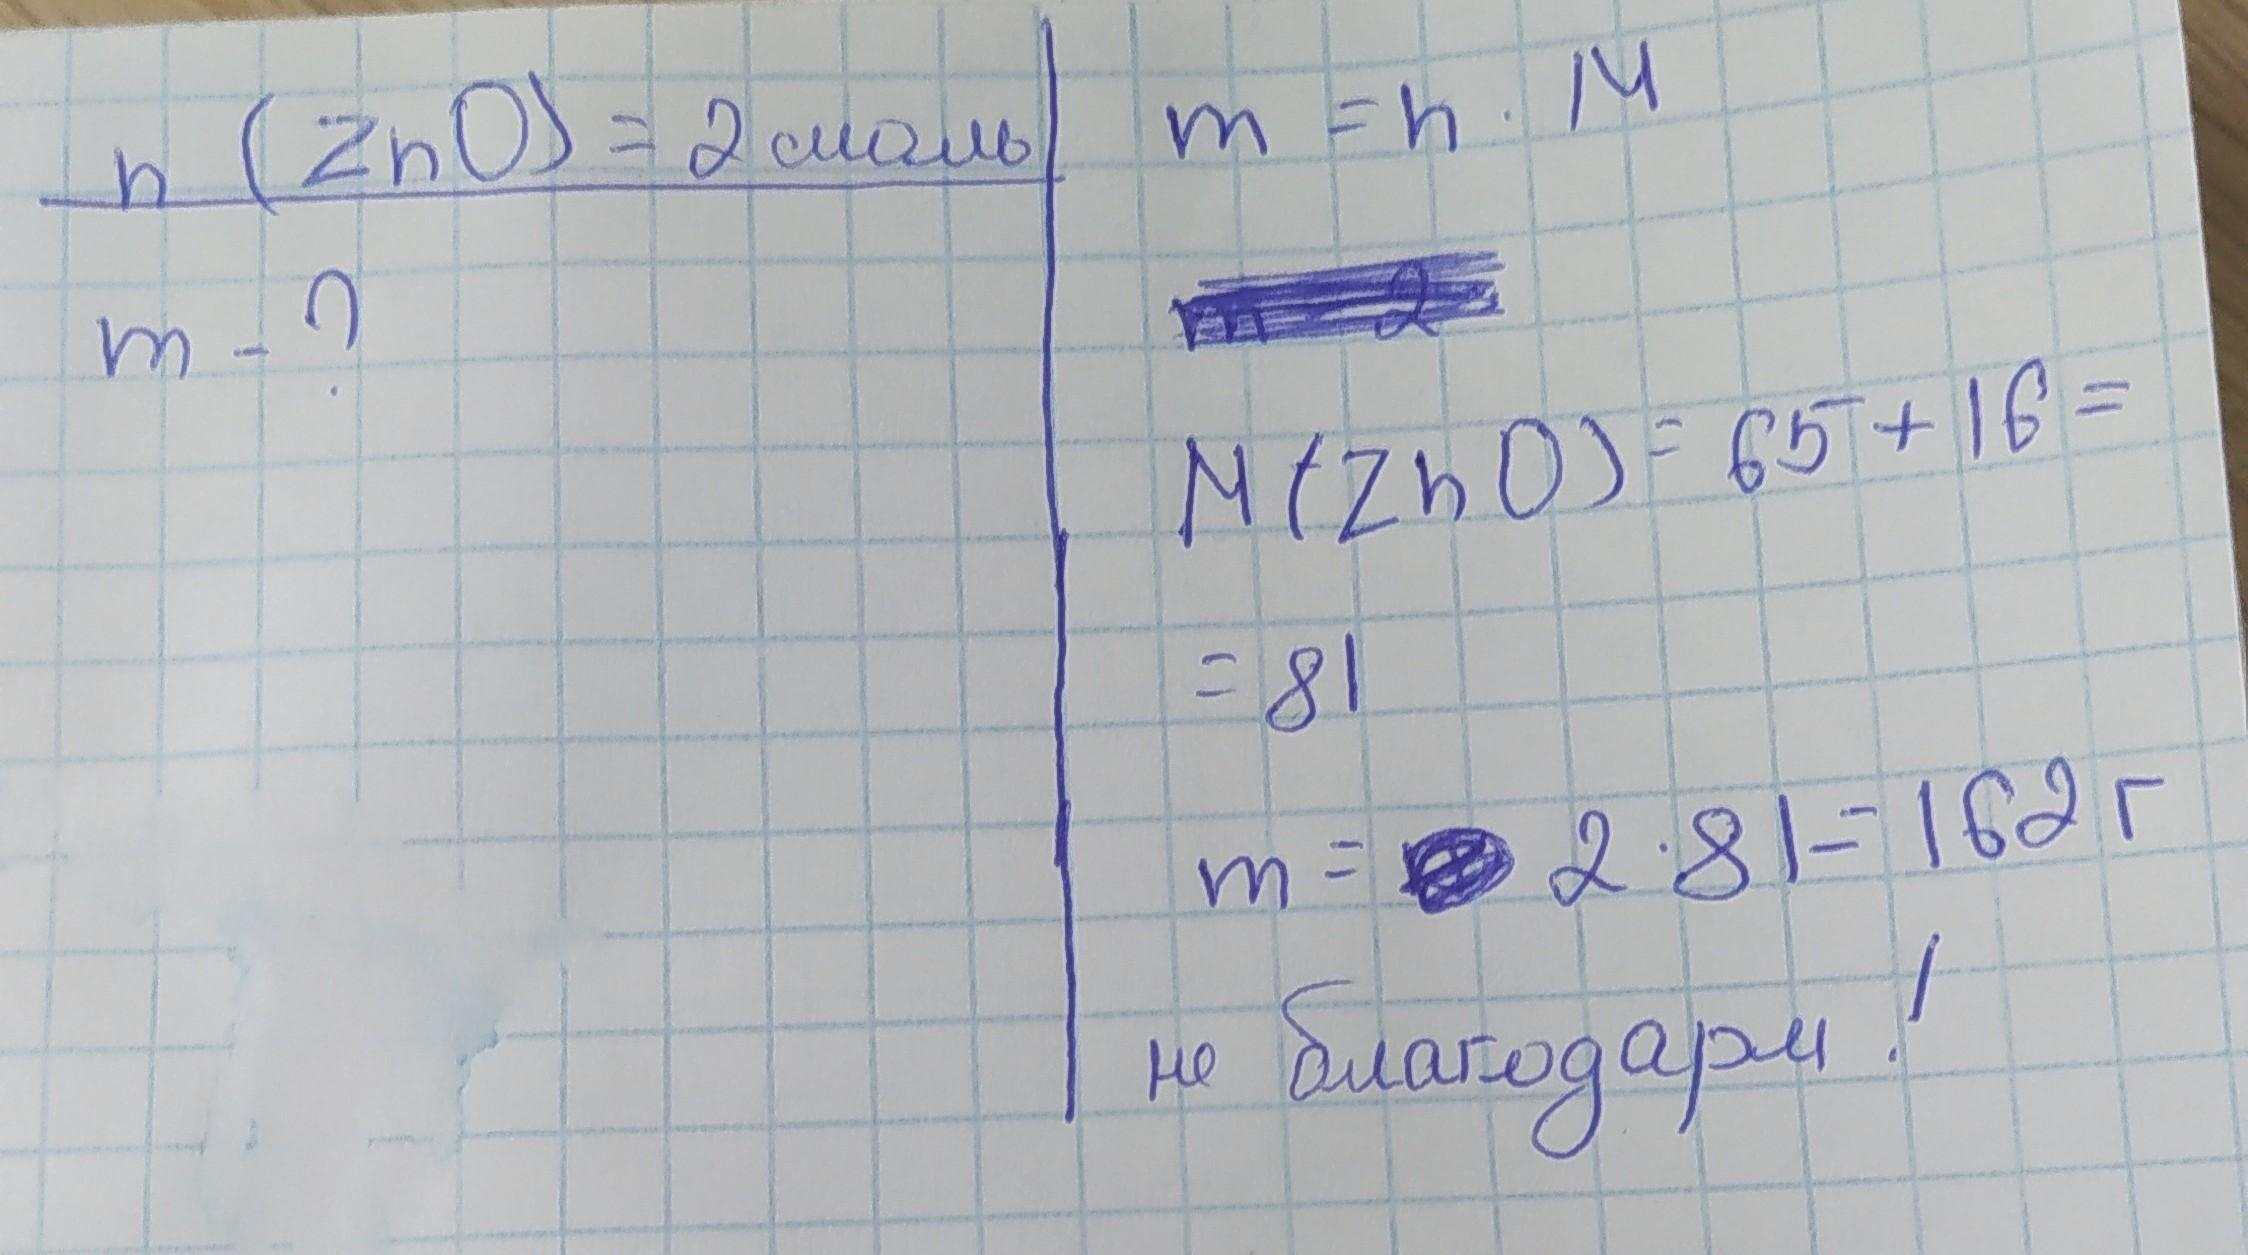 n (ZnO) = 2 моль
m - ?
m = n · M
M (ZnO) = 65 + 16 =
= 81
m = 2 · 81 = 162 г
не благодари !